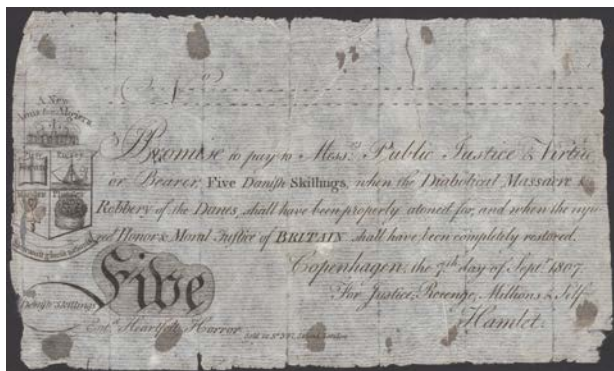 A New
Arms for Algiers
I Promise to pay to Mess.rs Public Justice & Virtue
or Bearer, Five Danish Skillings, when the Diabolical Massacre &
Robbery of the Danes, shall have been properly atoned for, and when the inju-
red Honor & Moral Justice of BRITAIN shall have been completely restored.
Copenhagen, the 7.th day of Sept.r 1807.
For Justice, Revenge, Millions & Self
Five
Danish Skillings
Hamlet.
Ent.d Heartfelt Horror